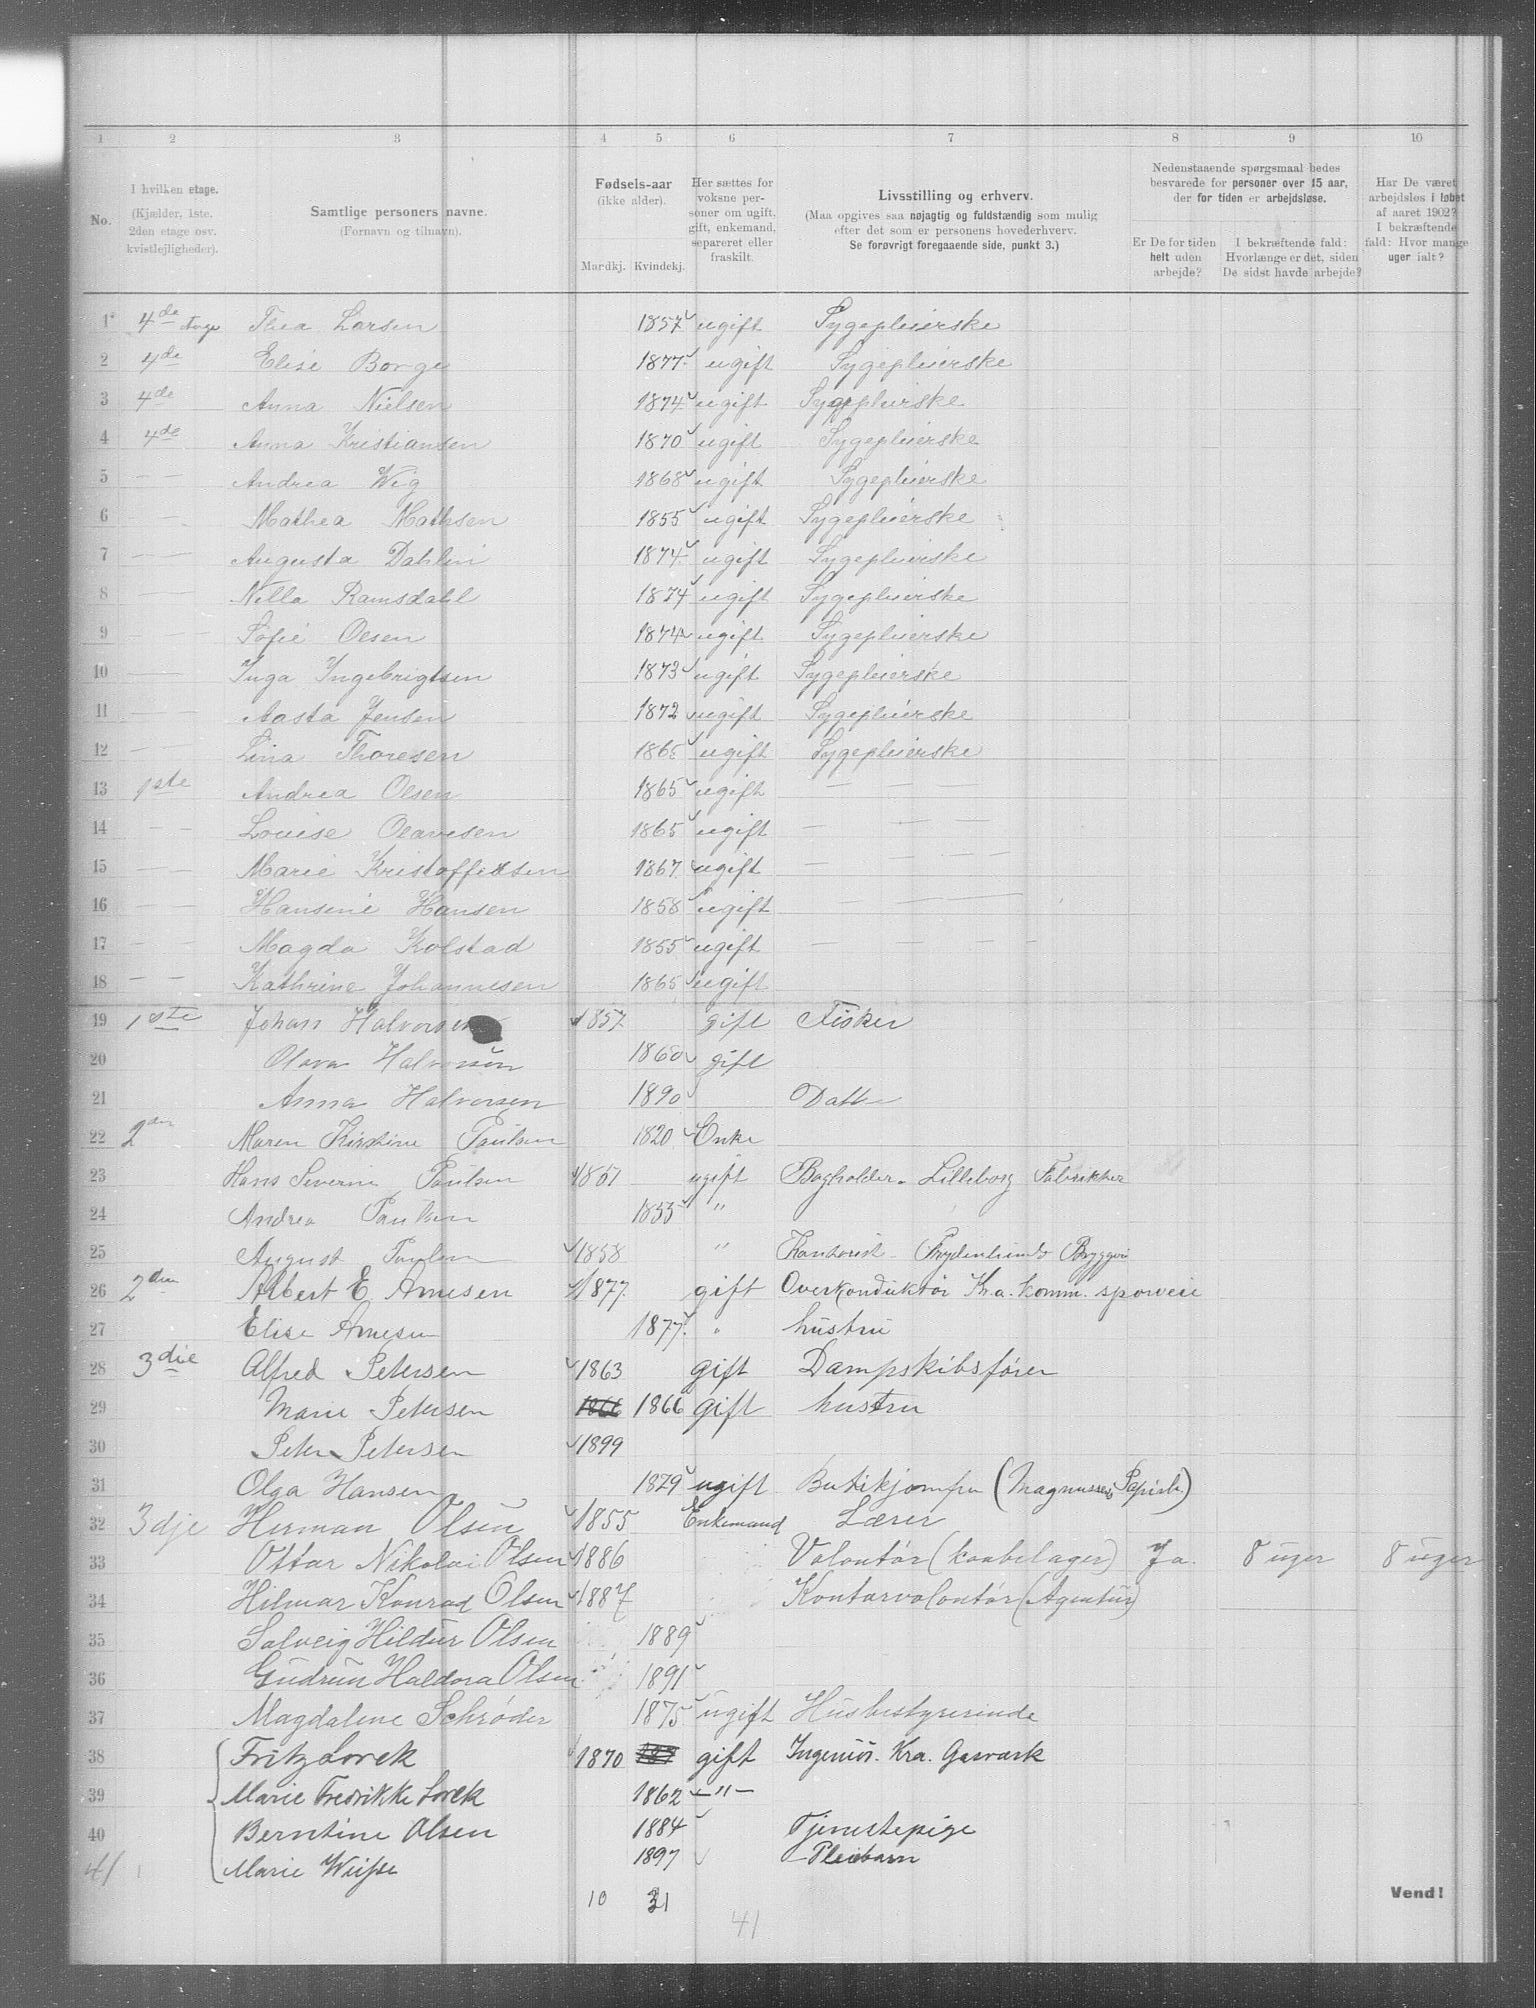 1 2 3 4 5 6 7 8 9 10
No.
I hvilken etage.
(Kjælder, 1ste.
2den etage osv.
kvistlejligheder).
Samtlige personers navne.
(Fornavn og tilnavn).
Fødsels-aar
(ikke alder).
Mandkj. Kvindekj.
Her sættes for
voksne per-
soner om ugift,
gift, enkemand,
separeret eller
fraskilt.
Livsstilling og erhverv.
(Maa opgives saa nøjagtig og fuldstændig som mulig
efter det som er personens hovederhverv.
Se forøvrigt foregaaende side, punkt 3.)
Nedenstaaende spørgsmaal bedes
besvarede for personer over 15 aar,
der for tiden er arbejdsløse.
Er De for tiden
helt uden
arbejde?
I bekræftende fald:
Hvorlænge er det, siden
De sidst havde arbejde?
Har De været
arbejdsløs i løbet
af aaret 1902?
I bekræftende
fald: Hvor mange
uger ialt?
1 4de Thea Larsen 1857 ugift Sygepleierske
2 4de Elise Borge 1877 ugift Sygepleierske
3 4de Anna Nielsen 1874 ugift Sygepleierske
4 4de Anna Kristiansen 1870 ugift Sygepleierske
5 — — Andrea Wig 1868 ugift Sygepleierske
6 — Mathea Mathsen 1855 ugift Sygepleierske
7 — — Augusta Dahlin 1874 ugift Sygepleierske
8 — — Nilla Ramsdahl 1874 ugift Sygepleierske
9 — Sofie Olsen 1874 ugift Sygepleierske
10 — — Inga Ingebrigtsen 1873 ugift Sygepleierske
11 — — Aasta Jensen 1872 ugift Sygepleierske
12 — — Lina Thoresen 1865 ugift Sygepleierske
13 1ste Andrea Olsen 1865 ugift — — —
14 — — Louise Olavesen 1865 ugift — — —
15 — — Marie Kristoffersen 1867 ugift — — —
16 — — Hansine Hansen 1858 ugift — — —
17 — — Magda Kolstad 1855 ugift — — — —
18 — — Kathrine Johannesen 1865 ugift
19 1ste Johan Halvorsen 1857 gift Fisker
20 Olava Halvorsen 1860 gift
21 Anna Halvorsen 1890 Datter
22 2den Maren Kirstine Paulsen 1820 Enke
23 Hans Severin Paulsen 1851 ugift Bogholder. Lilleborg Fabrikker
24 Andrea Paulsen 1855 "
25 August Paulsen 1858 " Kontorist - Frydenlunds Bryggeri
26 2den Albert E. Arnesen 1877 gift Overkonduktør Kra. komm. sporveie
27 Elise Arnesen 1877 " hustru
28 3die Alfred Petersen 1863 gift Dampskibsfører
29 Marie Petersen 1866 1866 gift hustru
30 Peter Petersen 1899
31 Olga Hansen 1879 ugift Butikjomfru (Magnussens Papirh.)
32 3dje Herman Olsen 1855 Enkemand Lærer
33 Ottar Nikolai Olsen 1886 Volontør (kaabelager) Ja. 8 uger 8 uger
34 Hilmar Konrad Olsen 1887 Kontorvolontør (Agentur)
35 Solveig Hildur Olsen 1889
36 Gudrun Haldora Olsen 1891
37 Magdalene Schrøder 1875 ugift Husbestyrerinde
38 Fritz Lorck 1870 gift Ingeniør. Kra. Gasværk
39 Marie Fredrikke Lorck 1862 —"—
40 Berntine Olsen 1884 Tjenestepige
41 Marie 1897 Pleiebarn
10 31
41
Vend!